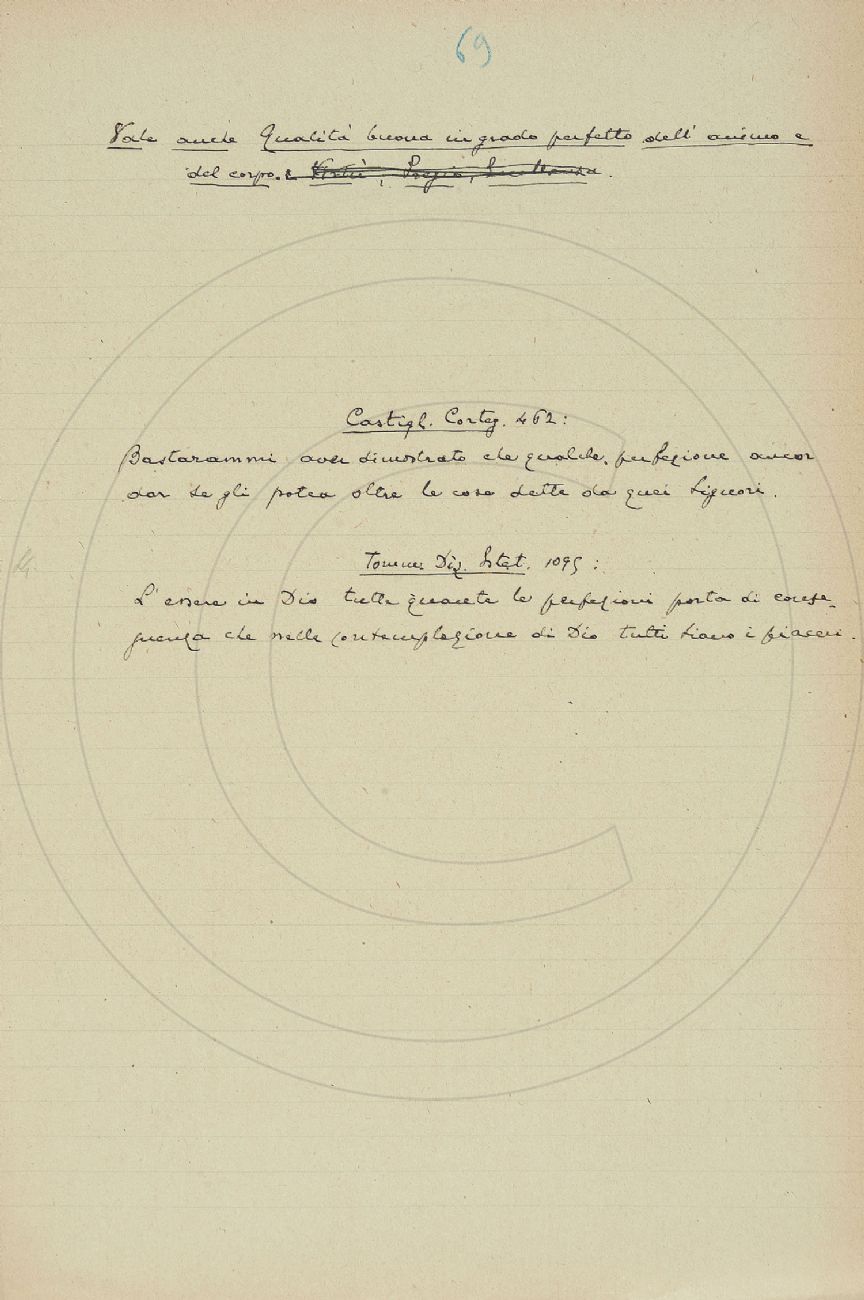 69
Vale anche Qualità buona in grado perfetto dell' animo e
del corpo. e Virtù, Pregio, Eccellenza.
Castigl. Corteg. 462:
Bastarammi aver dimostrato che qualche perfezione ancor
dar se gli potea oltre le cose dette da quei Signori.
Tomm. Diz. Estet. 1095:
L'essere in Dio tutte quante le perfezioni porta di conse-
guenza che nella contemplazione di Dio tutti siano i piaceri.